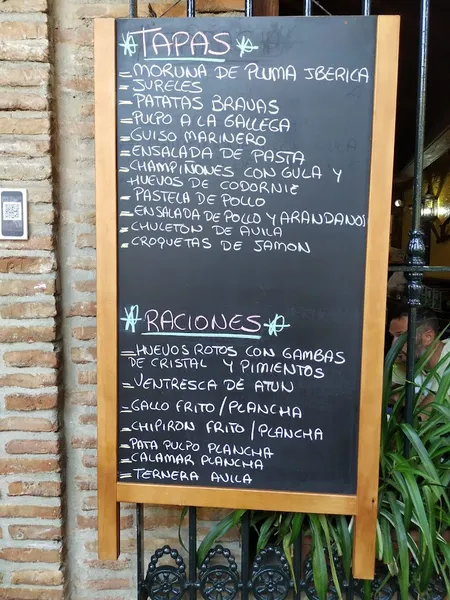 TAPAS
= MORUNA DE PLUMA IBERICA
= SURELES
= PATATAS BRAVAS
= PULPO A LA GALLEGA
= GUISO MARINERO
= ENSALADA DE PASTA
= CHAMPIÑONES CON GULA Y
HUEVOS DE CODORNIZ
= PASTELA DE POLLO
= ENSALADA DE POLLO Y ARANDANOS
= CHULETON DE AVILA
= CROQUETAS DE JAMON
RACIONES
= HUEVOS ROTOS CON GAMBAS
DE CRISTAL Y PIMIENTOS
= VENTRESCA DE ATUN
= GALLO FRITO/PLANCHA
= CHIPIRON FRITO/PLANCHA
= PATA PULPO PLANCHA
= CALAMAR PLANCHA
= TERNERA AVILA